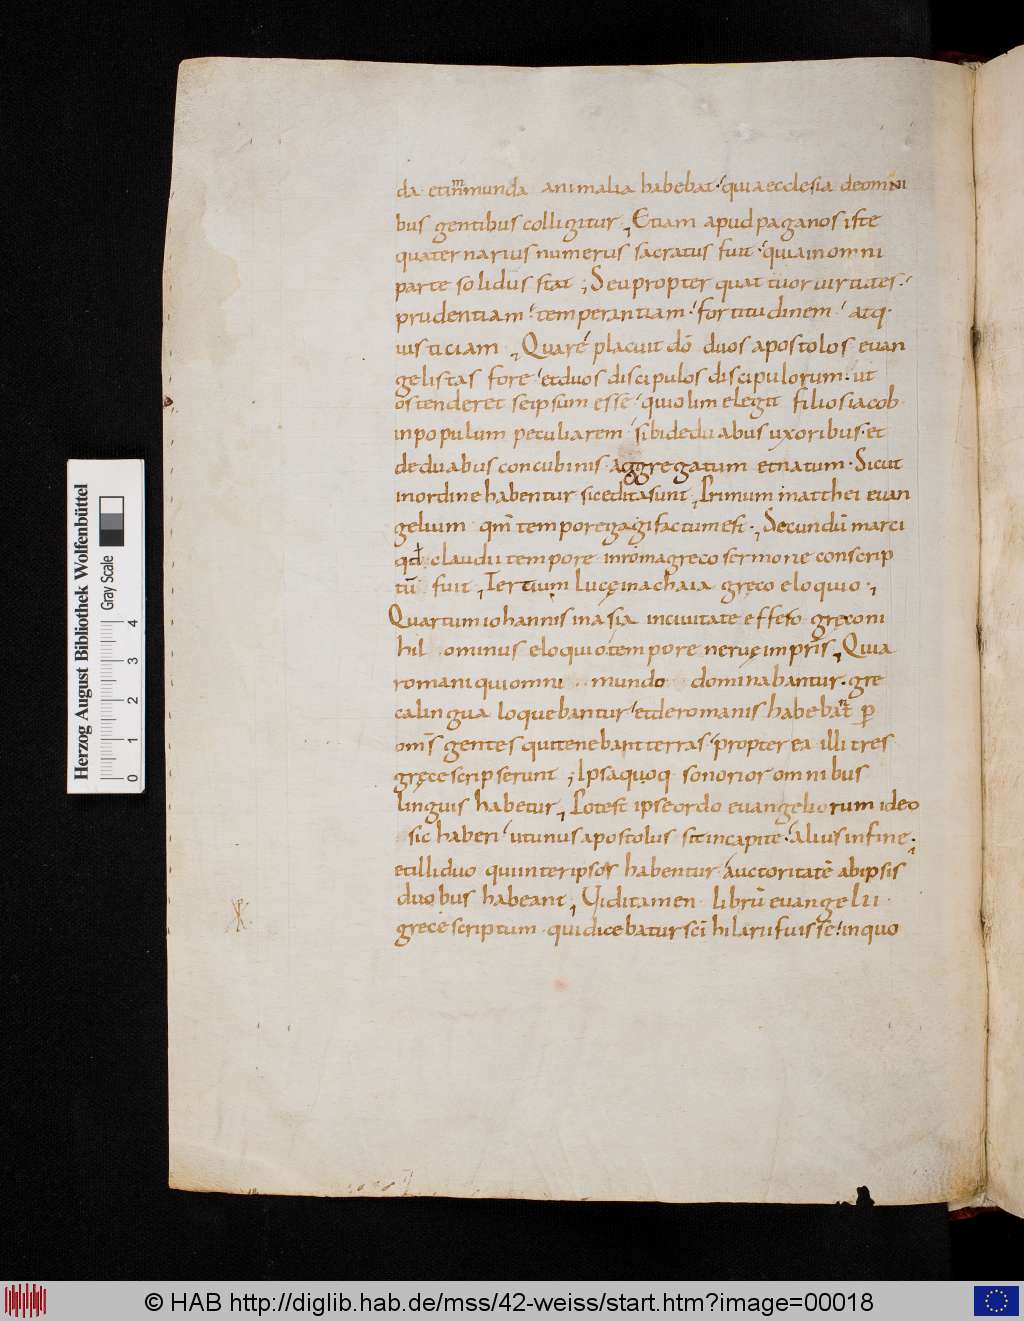 da et inmunda animalia habebat· quia ecclesia de omni
bus gentibus colligitur; Etiam apud paganos iste
quaternarius numerus sacratus fuit· quia in omni
parte solidus stat; Seu propter quattuor uirtutes·
prudentiam· temperantiam· fortitudinem· atq·
iusticiam; Quare placuit dō duos apostolos euan
gelistas fore· et duos discipulos discipulorum· ut
ostenderet seipsum esse· qui olim elegit filios iacob
in populum peculiarem sibi de duabus uxoribus· et
de duabus concubinis aggregatum et natum· Sicut
in ordine habentur sic edita sunt; Primum matthei euan
gelium qm̄ tempore gagi factum est; Secundū marci
qđ claudii tempore in roma greco sermone conscrip
tū fuit; Tertium lucę in achaia gręco eloquio;
Quartum iohannis in asia in ciuitate effeso greco ni
hil ominus eloquio tempore neruę impr̄is; Quia
romani qui omni mundo dominabantur· gre
ca lingua loquebantur· et de romanis habebat ꝑ
om̄s gentes qui tenebant terras· propterea illi tres
gręce scripserunt; Ipsa quoq sonorior omnibus
linguis habetur; Potest ipse ordo euangeliorum ideo
sic haberi· ut unus apostolus sit in capite· alius in fine;
et illi duo qui inter ipsos habentur auctoritatē ab ipsis
duobus habeant; Uidi tamen librū euangelii
grece scriptum· qui dicebatur sc̄i hilarii fuisse· in quo
Herzog August Bibliothek Wolfenbüttel
Gray Scale
0 1 2 3 4
© HAB http://diglib.hab.de/mss/42-weiss/start.htm?image=00018